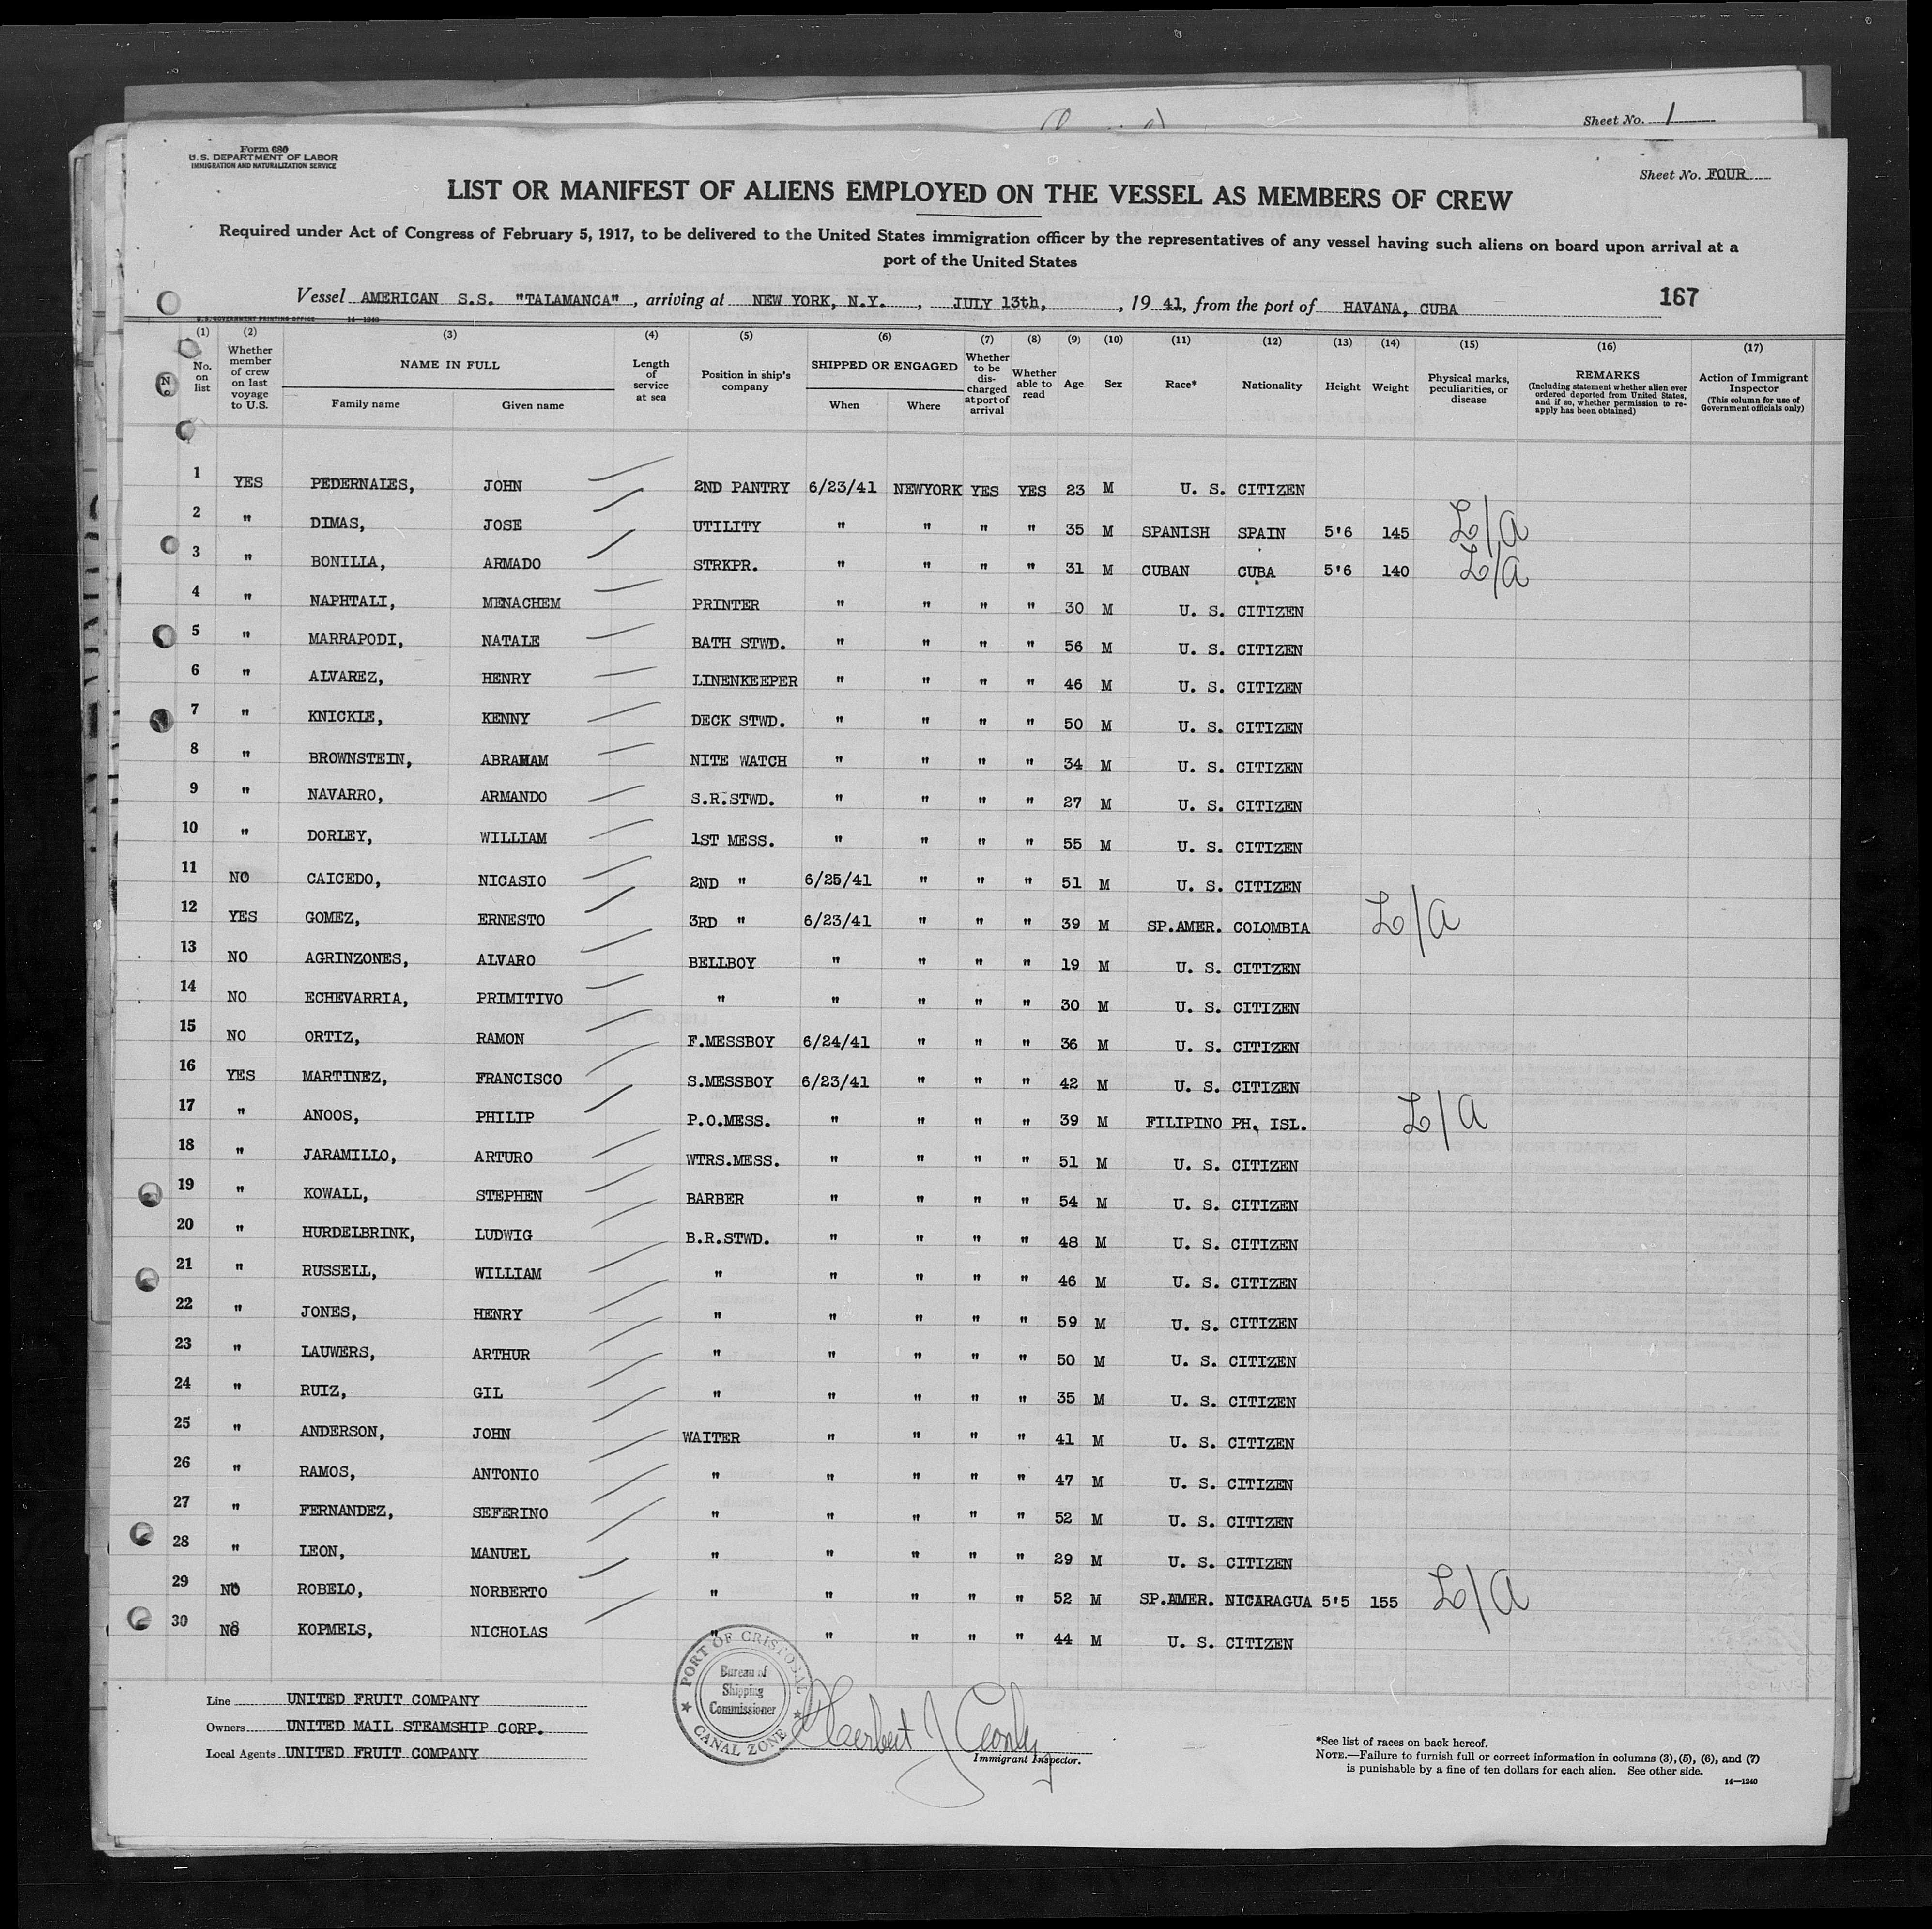 Sheet No. 1
Form 680
U.S. DEPARTMENT OF LABOR
IMMIGRATION AND NATURALIZATION SERVICE
Sheet No. FOUR
LIST OR MANIFEST OF ALIENS EMPLOYED ON THE VESSEL AS MEMBERS OF CREW
Required under Act of Congress of February 5, 1917, to be delivered to the United States immigration officer by the representatives of any vessel having such aliens on board upon arrival at a
port of the United States
Vessel AMERICAN S.S. "TALAMANCA", arriving at NEW YORK, N.Y., JULY 13th, , 19 41, from the port of HAVANA, CUBA
167
U.S. GOVERNMENT PRINTING OFFICE 14—1240
(1) (2) (3) (4) (5) (6) (7) (8) (9) (10) (11) (12) (13) (14) (15) (16) (17)
No. on list
Whether member of crew on last voyage to U.S.
NAME IN FULL
Family name Given name
Length of service at sea
Position in ship's company
SHIPPED OR ENGAGED
When Where
Whether to be discharged at port of arrival
Whether able to read
Age
Sex
Race*
Nationality
Height
Weight
Physical marks, peculiarities, or disease
REMARKS
(Including statement whether alien ever ordered deported from United States, and if so, whether permission to re-apply has been obtained)
Action of Immigrant Inspector
(This column for use of Government officials only)
No
1 YES PEDERNALES, JOHN 2ND PANTRY 6/23/41 NEWYORK YES YES 23 M U. S. CITIZEN
2 " DIMAS, JOSE UTILITY " " " " 35 M SPANISH SPAIN 5'6 145 L/A
3 " BONILLA, ARMADO STRKPR. " " " " 31 M CUBAN CUBA 5'6 140 L/A
4 " NAPHTALI, MENACHEM PRINTER " " " " 30 M U. S. CITIZEN
5 " MARRAPODI, NATALE BATH STWD. " " " " 56 M U. S. CITIZEN
6 " ALVAREZ, HENRY LINENKEEPER " " " " 46 M U. S. CITIZEN
7 " KNICKIE, KENNY DECK STWD. " " " " 50 M U. S. CITIZEN
8 " BROWNSTEIN, ABRAHAM NITE WATCH " " " " 34 M U. S. CITIZEN
9 " NAVARRO, ARMANDO S.R.STWD. " " " " 27 M U. S. CITIZEN
10 " DORLEY, WILLIAM 1ST MESS. " " " " 55 M U. S. CITIZEN
11 NO CAICEDO, NICASIO 2ND " 6/25/41 " " " 51 M U. S. CITIZEN
12 YES GOMEZ, ERNESTO 3RD " 6/23/41 " " " 39 M SP.AMER. COLOMBIA L/A
13 NO AGRINZONES, ALVARO BELLBOY " " " " 19 M U. S. CITIZEN
14 NO ECHEVARRIA, PRIMITIVO " " " " " 30 M U. S. CITIZEN
15 NO ORTIZ, RAMON F.MESSBOY 6/24/41 " " " 36 M U. S. CITIZEN
16 YES MARTINEZ, FRANCISCO S.MESSBOY 6/23/41 " " " 42 M U. S. CITIZEN
17 " ANOOS, PHILIP P.O.MESS. " " " " 39 M FILIPINO PH. ISL. L/A
18 " JARAMILLO, ARTURO WTRS.MESS. " " " " 51 M U. S. CITIZEN
19 " KOWALL, STEPHEN BARBER " " " " 54 M U. S. CITIZEN
20 " HURDELBRINK, LUDWIG B.R.STWD. " " " " 48 M U. S. CITIZEN
21 " RUSSELL, WILLIAM " " " " " 46 M U. S. CITIZEN
22 " JONES, HENRY " " " " " 59 M U. S. CITIZEN
23 " LAUWERS, ARTHUR " " " " " 50 M U. S. CITIZEN
24 " RUIZ, GIL " " " " " 35 M U. S. CITIZEN
25 " ANDERSON, JOHN WAITER " " " " 41 M U. S. CITIZEN
26 " RAMOS, ANTONIO " " " " " 47 M U. S. CITIZEN
27 " FERNANDEZ, SEFERINO " " " " " 52 M U. S. CITIZEN
28 " LEON, MANUEL " " " " " 29 M U. S. CITIZEN
29 NO ROBELO, NORBERTO " " " " " 52 M SP.AMER. NICARAGUA 5'5 155 L/A
30 NO KOPMELS, NICHOLAS " " " " " 44 M U. S. CITIZEN
PORT OF CRISTOBAL
Bureau of
Shipping
Commissioner
CANAL ZONE
Line UNITED FRUIT COMPANY
Owners UNITED MAIL STEAMSHIP CORP.
Local Agents UNITED FRUIT COMPANY
Immigrant Inspector.
*See list of races on back hereof.
NOTE.—Failure to furnish full or correct information in columns (3), (5), (6), and (7)
is punishable by a fine of ten dollars for each alien. See other side.
14—1240